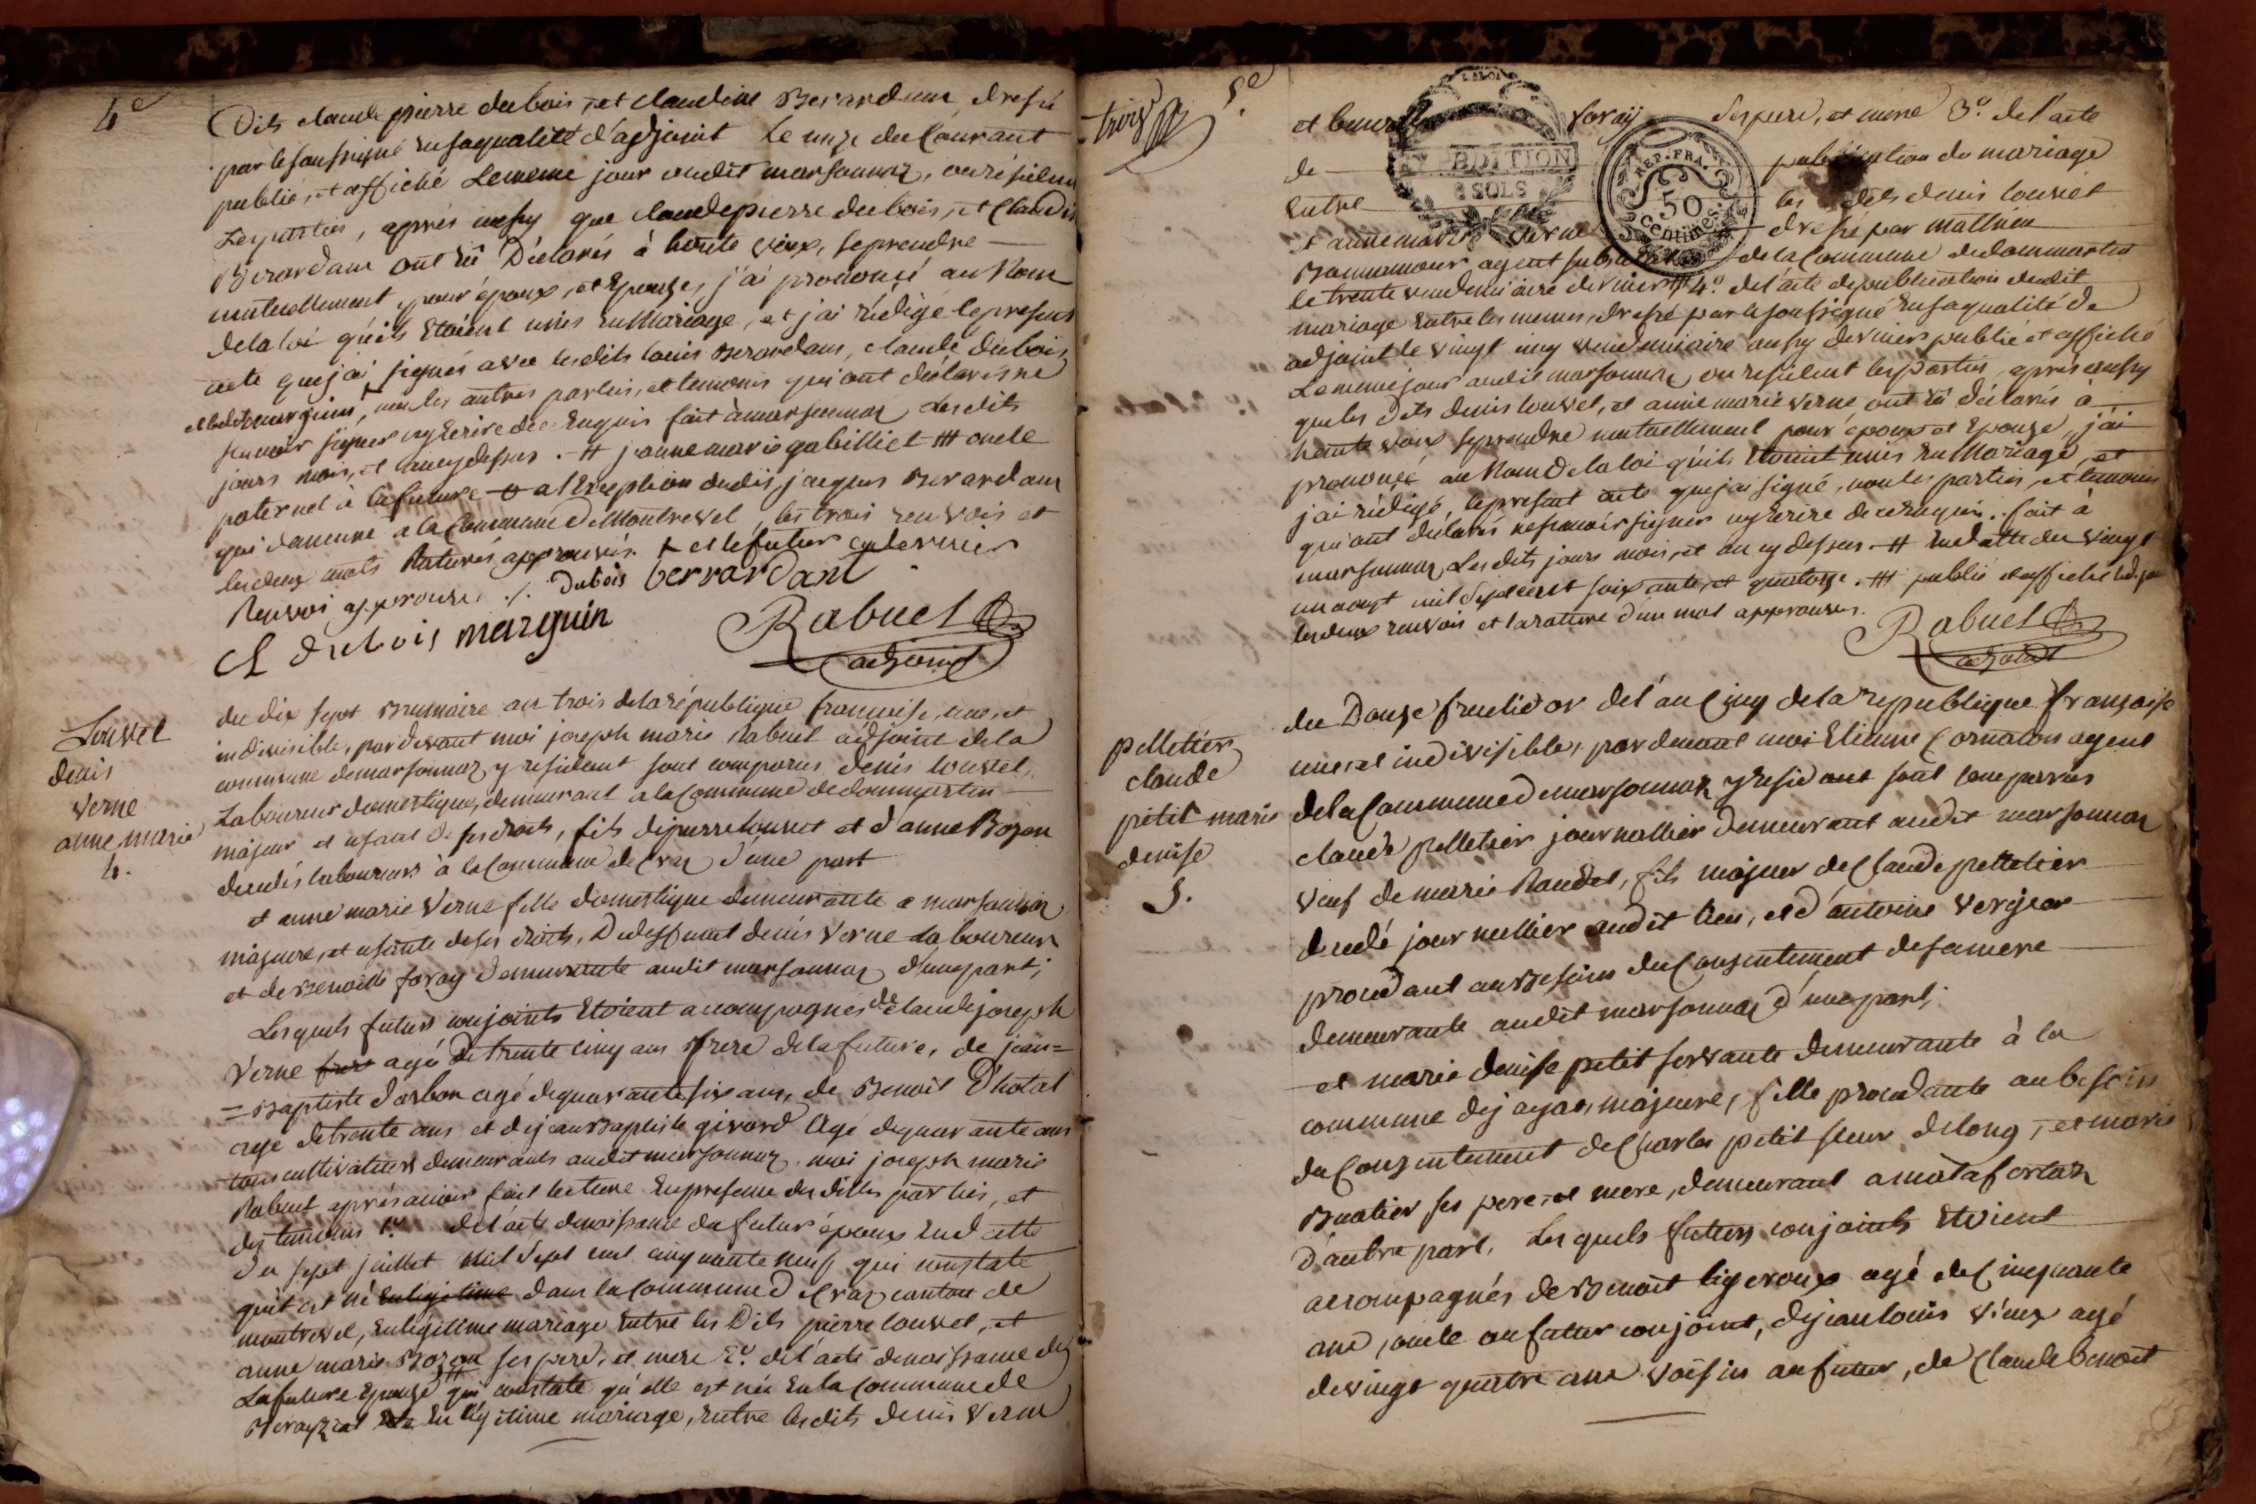 4e
Dits claude pierre dubois, et claudine Berardam, dressé
par le soussigné en sa qualité d'adjoint le onze du Courant
publié, et affiché le meme jour audit marsonnaz, ou résident
les parties, après aussy que claude pierre dubois, et Claudine
Berardam ont eû Déclarés à haute voix, se prendre
mutuellement pour époux, et Epouse, j'ai prononcé au Nom
de la loi qu'ils Etoient unis en Mariage, et j'ai rédigé le present
acte que j'ai signés avec lesdits louis Berardam, claude dubois
et ledit marguin, non les autres parties, et temoins qui ont déclarés ne
scavoir signer ny Ecrire de ce Enquis fait à marsonnaz les dits
jours mois, et an cy dessus. # jeanne marie gabilliet ## oncle
paternel à la future a l'Exception dudit jacques Berardam
qui demeure à la Commune de Montrevel, les trois renvois et
les deux mots Raturés approuvés. et le futur ce dernier
Renvoi approuvé. Dubois berrardant
Cl dubois marguin Rabuel
adjoint
Louvet
denis
verne
anne marie
4.
du dix sept Brumaire an trois de la république francoise, une, et
indivisible, par devant moi joseph marie Rabuel adjoint de la
commune de marsonnaz y résident sont comparus denis louvet,
Laboureur domestique, demeurant a la Commune de dommartin
majeur et usant de ses droits, fils de pierre louvet et d'anne Bozon
decedés laboureurs à la Commune de Craz d'une part
et anne marie verne fille domestique demeurante a marsonnaz
majeure, et usante de ses droits, De deffunt denis verne laboureur
et de Benoitte foray demeurante audit marsonnaz d'une part;
Les quels futurs conjoints Etoient accompagnés de claude joseph
verne agé de trente cinq ans frere de la future, de jean=
=Baptiste darbon agé de quarante six ans, de Benoit D'hotal
agé de trente ans et de jean Baptiste girard Agé de quarante ans
tous cultivateurs demeurants audit marsonnaz. moi joseph marie
Rabuel après avoir fait lecture En presence des dittes parties, et
des temoins 1º. de l'acte de naissance du futur époux En d atte
du sept juillet Mil Sept cent cinquante neuf qui constate
qu'il est né dans la Commune de Craz canton de
montrevel, En légitime mariage Entre les Dits pierre louvet, et
anne marie Bozon ses pere, et mere 2º. de l'acte de naissance de
La future Epouse # qui constate qu'elle est née En la Commune de
Bereyziat En légitime mariage, Entre lesdits denis verne
trois
5e
et benoitte foray ses pere, et mere 3º. de l'acte
de publication de mariage
Entre les dits denis louvet
et anne marie verne dressé par mathieu
agent de la Commune de dommartin
le trente vendemiaire dernier # 4º. de l'acte de publication dudit
mariage Entre les memes, dressé par le soussigné En sa qualité de
adjoint le vingt cinq vendemiaire aussy dernier publié et affiché
Le meme jour audit marsonnaz ou resident les parties, après aussy
que les dits denis louvet, et anne marie verne ont eû déclarés à
haute voix se prendre mutuellement pour époux et Epouse, j'ai
prononcé au Nom de la loi qu'ils Etoient unis En Mariage, et
j'ai rédigé, le present acte que j'ai signé, non les parties, et temoins
qui ont déclarés ne scavoir signer ny Ecrire de ce Enquis. fait à
marsonnaz Les dits jours mois, et an cy dessus. # En datte du vingt
un aoust mil sept cent soixante, et quatorze. ## publié et affiché
les deux renvois et la rature d'un mot approuvés.
Rabuel
adjoint
EXPÉDITION
8 SOLS
LA LOI
REP. FRA.
50
Centimes.
pelletier
claude
petit marie
denise
5.
du Douze fructidor de l'an Cinq de la republique françoise
une, et indivisible, par devant moi Etienne Cornaton agent
de la Commune de marsonnaz y residant sont comparus
claude pelletier journallier demeurant audit marsonnaz
veuf de marie Raudet, fils majeur de Claude pelletier
decedé journellier audit lieu, et d'antoine vergear
procedant au Besoin du Consentement de sa mere
demeurante audit marsonnaz d'une part;
et marie denise petit servante demeurante à la
commune de jayat, majeure, fille procedante au besoin
du Consentement de Charles petit sieur delong, et marie
Buatier ses pere, et mere, demeurant a motafortaz
D'autre part, Les quels futurs conjoints Etoient
accompagnés de Benoit ligeroux agé de Cinquante
ans, oncle au futur conjoint, de jean louis vieux agé
de vingt quatre ans voisin au futur, de Claude benoit